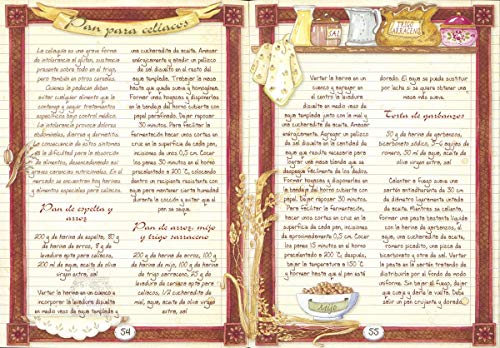 Pan para celíacos
La celiaquía es una forma grave
de intolerancia al gluten, sustancia
presente sobre todo en el trigo,
pero también en otros cereales.
Quienes la padecen deben
evitar cualquier alimento que la
contenga y seguir tratamientos
específicos bajo control médico.
La intolerancia provoca dolores
abdominales, diarrea y dermatitis.
La consecuencia de estos síntomas
es la dificultad para la absorción
de alimentos, desencadenando así
graves carencias nutricionales. En el
mercado se encuentran hoy harinas
y alimentos especiales para celíacos.
Pan de espelta y
arroz
200 g de harina de espelta, 80 g
de harina de arroz, 9 g de
levadura apta para celíacos,
200 ml de agua, aceite de oliva
virgen extra, sal
Verter la harina en un cuenco e
incorporar la levadura disuelta
en medio vaso de agua templada y
una cucharadita de aceite. Amasar
enérgicamente y añadir un pellizco
de sal disuelta en el resto del
agua templada. Trabajar la masa
hasta que quede suave y homogénea.
Formar unas hogazas y disponerlas
en la bandeja del horno cubierta con
papel parafinado. Dejar reposar
30 minutos. Para facilitar la
fermentación hacer unos cortes en
la superficie de cada pan,
incisiones de unos 0,5 cm. Cocer
los panes 30 minutos en el horno
precalentado a 200 °C, colocando
dentro un recipiente resistente con
agua para mantener cierta humedad
durante la cocción y evitar que el
pan se seque.
Pan de arroz, mijo
y trigo sarraceno
200 g de harina de arroz, 100 g
de harina de mijo, 100 g de harina
de trigo sarraceno, 25 g de
levadura de cerveza apta para
celíacos, 1/2 cucharadita de
miel, agua, aceite de oliva virgen
extra, sal
54
SAL
TRIGO
SARRACENO
Verter la harina en un
cuenco y agregar en
el centro la levadura
disuelta en medio vaso de
agua templada junto con la miel y
una cucharadita de aceite. Amasar
enérgicamente. Agregar un pellizco
de sal disuelta en la cantidad
de agua que resulte necesaria para
lograr una masa blanda que se
despegue fácilmente de los dedos.
Formar hogazas y disponerlas en
la bandeja del horno cubierta con
papel. Dejar reposar 30 minutos.
Para facilitar la fermentación,
hacer unos cortes en la superficie
de cada pan, incisiones
de aproximadamente 0,5 cm. Cocer
los panes 15 minutos en el horno
precalentado a 200 °C, después,
bajar la temperatura a 150 °C
y hornear hasta que el pan esté
dorado. El agua se puede sustituir
por leche si se quiere obtener una
masa más suave.
Torta de garbanzos
50 g de harina de garbanzos,
bicarbonato sódico, 3-4 agujas de
romero, 50 ml de agua, aceite de
oliva virgen extra, sal
Calentar a fuego suave una
sartén antiadherente de 30 cm
de diámetro ligeramente untada
de aceite. Mientras se calienta,
formar una pasta bastante líquida
con la harina de garbanzos, el
agua, una cucharadita de aceite,
romero picadito, una pizca de
bicarbonato y otra de sal. Verter
la pasta en la sartén tratando de
distribuirla por el fondo de modo
uniforme. Sin bajar el fuego, darle
la vuelta una o dos veces. Debe
salir un pan crujiente y dorado.
Mijo
55